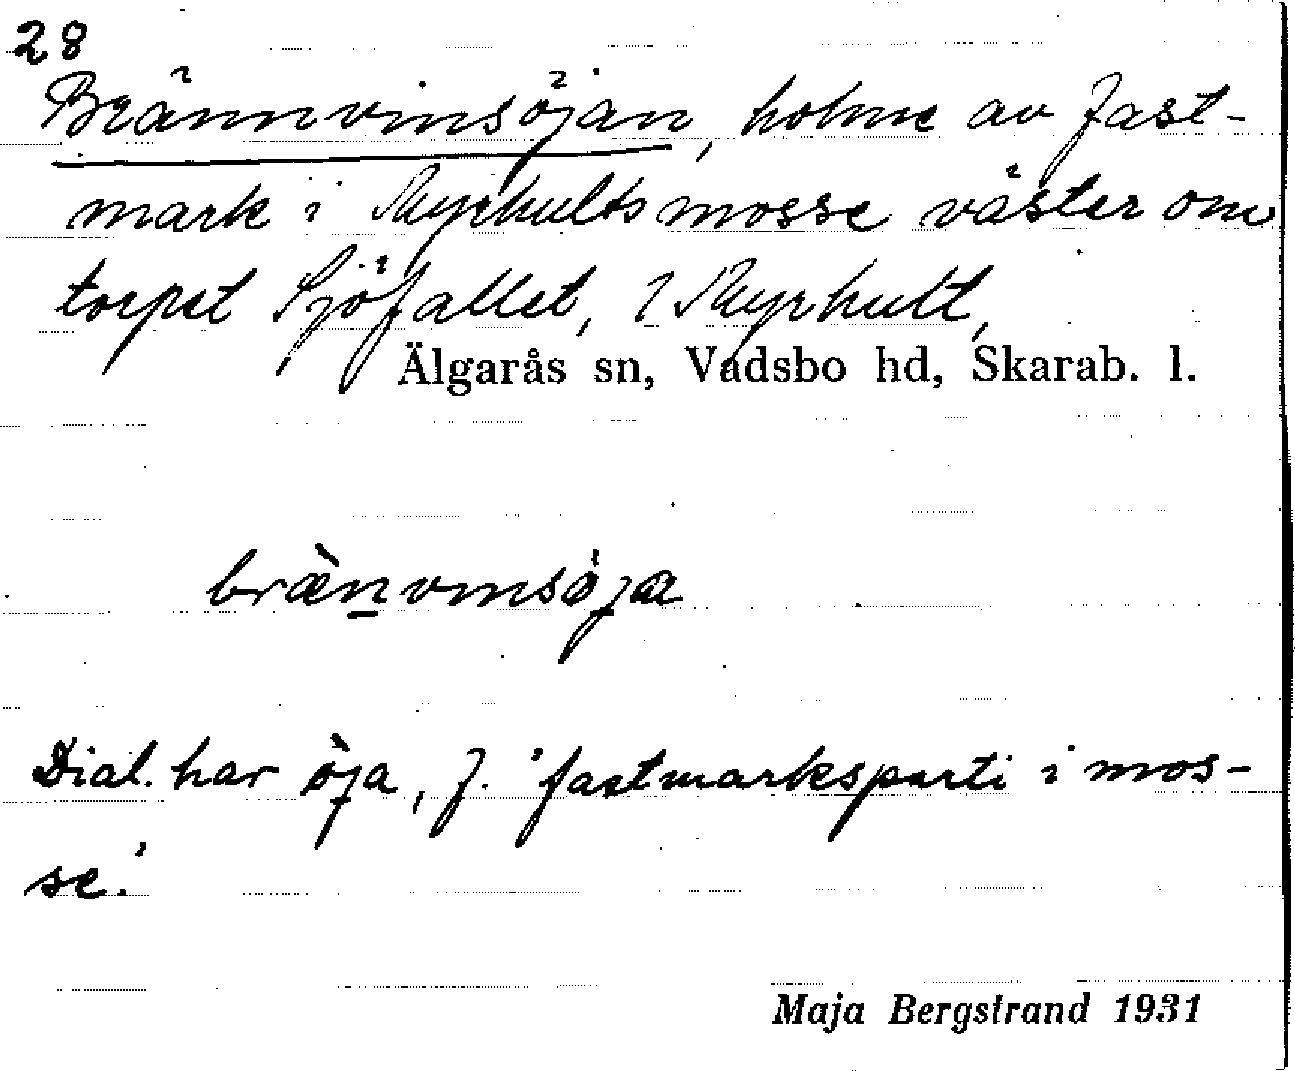 28
Brännvinsöjan, holme av fast-
mark i Myrhultsmosse väster om
torpet Sjöfallet, 2 Myrhult,
Älgarås sn, Vadsbo hd, Skarab. l.
brænvinsöja
Dial. har öja, f. 'fastmarksparti i mos-
se.'
Maja Bergstrand 1931